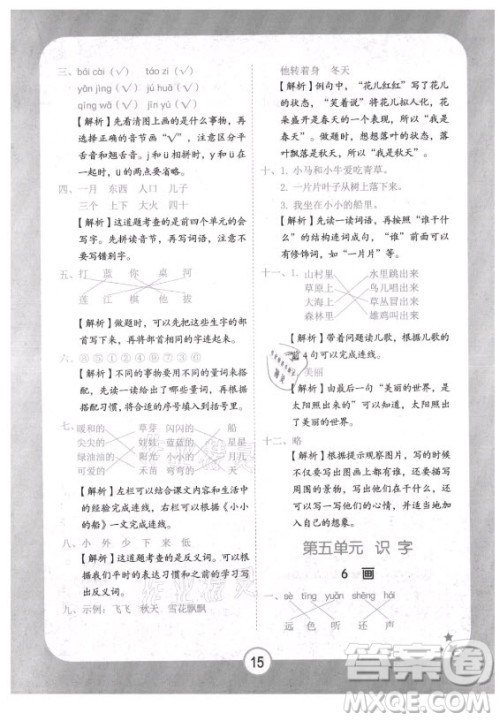 三、bái cài（√） táo zi（√）
yān jǐng（√） jú huā（√）
qīng wā（√） jīn yú（√）
【解析】先看清图上画的是什么事物，再
选择正确的音节画“√”，注意区分平
舌音和翘舌音。j和ü以及y和ü相拼
时，ü的两点要省略。
四、一月 东西 人口 儿子
三个 上下 大火 四十
【解析】这道题考查的是前四个单元的会
写字。先拼读音节，再写词语，注意不要
写错别字。
五、打 蓝 你 桌 河
莲 江 棋 他 拔
【解析】做题时，可以先把所给的生字的部
首写下来，再将部首相同的字连起来。
【解析】不同的事物要用不同的量词来搭
配，先读一读出现了哪些量词，再根据
搭配选一选。
七、暖和的 草芽 闪闪的 船
尖尖的 娃娃 蓝蓝的 星星
绿油油的 阳光 小小的 月儿
可爱的 禾苗 弯弯的 天
【解析】左栏可以结合课文内容和生活中
的经验完成连线。右栏可以根据《小小
的船》一文完成连线。
八、小 外 少 下 后
【解析】这道题考查的是反义词。可以根
据平时的表达习惯和之前的学习写出
反义词。
九、示例：飞飞 秋天 雪花飘飘
他转着身 冬天
【解析】例句中，“花儿红红”写了花儿
的状态，“笑着说”将花儿拟人化，花
朵盛开是春天的表现，所以花朵说“我是
春天”。按照这样的思路，观察落叶，落
叶飘落是秋天，所以落叶说“我是秋天”。
十、1. 小马和小牛爱吃青草。
2. 一片片叶子从树上落下来。
3. 我坐在小小的船里。
【解析】先读一读词语，再按照“谁干什
么”的结构连词成句，注意句子可以
有修饰词语，如“一片片”等。
十一、1. 山村里 水里跳出来
草原上 鸟儿唱出来
大海上 草丛冒出来
森林里 雨娘向出来
【解析】带着问题读儿歌，根据儿歌的
第4句可以完成连线。
2. 美丽
【解析】从最后一句“美丽的世界，是
太阳照出来的”可知，太阳照出来的
世界是美丽的。
十二、略
【解析】根据提示观察图片，可以按照一定
的顺序写一写，还可以将动物、人物和
周围的景物、人物进行对照，加入自
己的想象。
第五单元 识字
6 画
一、sè tīng yuǎn shēng hái
远 色 听 还 声
15
答案圈
MXQE.COM